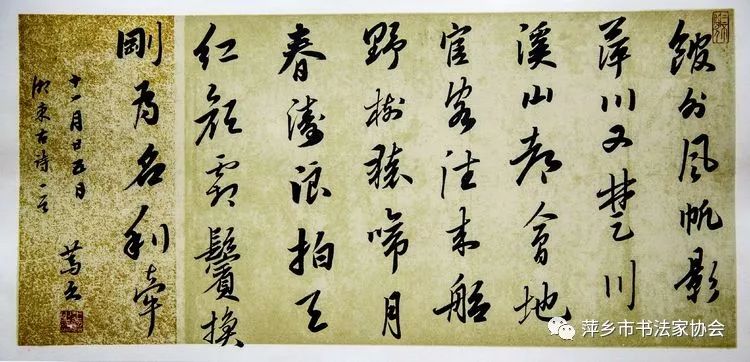 外風帆影
萍川又楚川
溪山都會地
宦客往来船
野樹猿啼月
春濤浪拍天
红颜霜鬢换
剛为名利牵
十一月廿五日
湘東古诗一首
萍乡市书法家协会